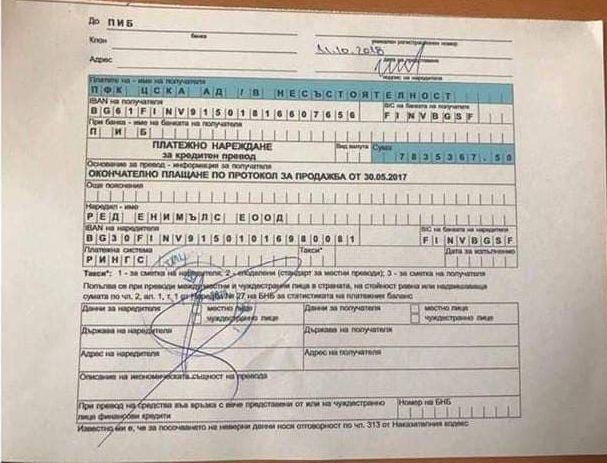 До ПИБ
банка
уникален регистрационен номер
Клон
11.10.2018
Адрес
дата на представяне
подпис на наредителя
Платете на - име на получателя
ПФК ЦСКА АД /В НЕСЪСТОЯТЕЛНОСТ
IBAN на получателя
BIC на банката на получателя
BG61FINV91501816607656
FINVBGSF
При банка - име на банката на получателя
ПИБ
ПЛАТЕЖНО НАРЕЖДАНЕ
за кредитен превод
Вид валута
Сума
7835367.50
Основание за превод - информация за получателя
ОКОНЧАТЕЛНО ПЛАЩАНЕ ПО ПРОТОКОЛ ЗА ПРОДАЖБА ОТ 30.05.2017
Още пояснения
Наредил - име
РЕД ЕНИМЪЛС ЕООД
IBAN на наредителя
BIC на банката на наредителя
BG30FINV91501016980081
FINVBGSF
Платежна система
Такси*
Дата на изпълнение
РИНГС
Такси*: 1 - за сметка на наредителя; 2 - споделени (стандарт за местни преводи); 3 - за сметка на получателя
Попълва се при преводи между местни и чуждестранни лица в страната, на стойност равна или надвишаваща
сумата по чл. 2, ал. 1, т. 1 от Наредба № 27 на БНБ за статистиката на платежния баланс
Данни за наредителя
местно лице
чуждестранно лице
Данни за получателя
местно лице
чуждестранно лице
Държава на наредителя
Държава на получателя
Адрес на наредителя
Адрес на получателя
Описание на икономическата същност на превода
При превод на средства във връзка с вече представени от или на чуждестранно
лице финансови кредити
Номер на БНБ
Известно ми е, че за посочването на неверни данни нося отговорност по чл. 313 от Наказателния кодекс